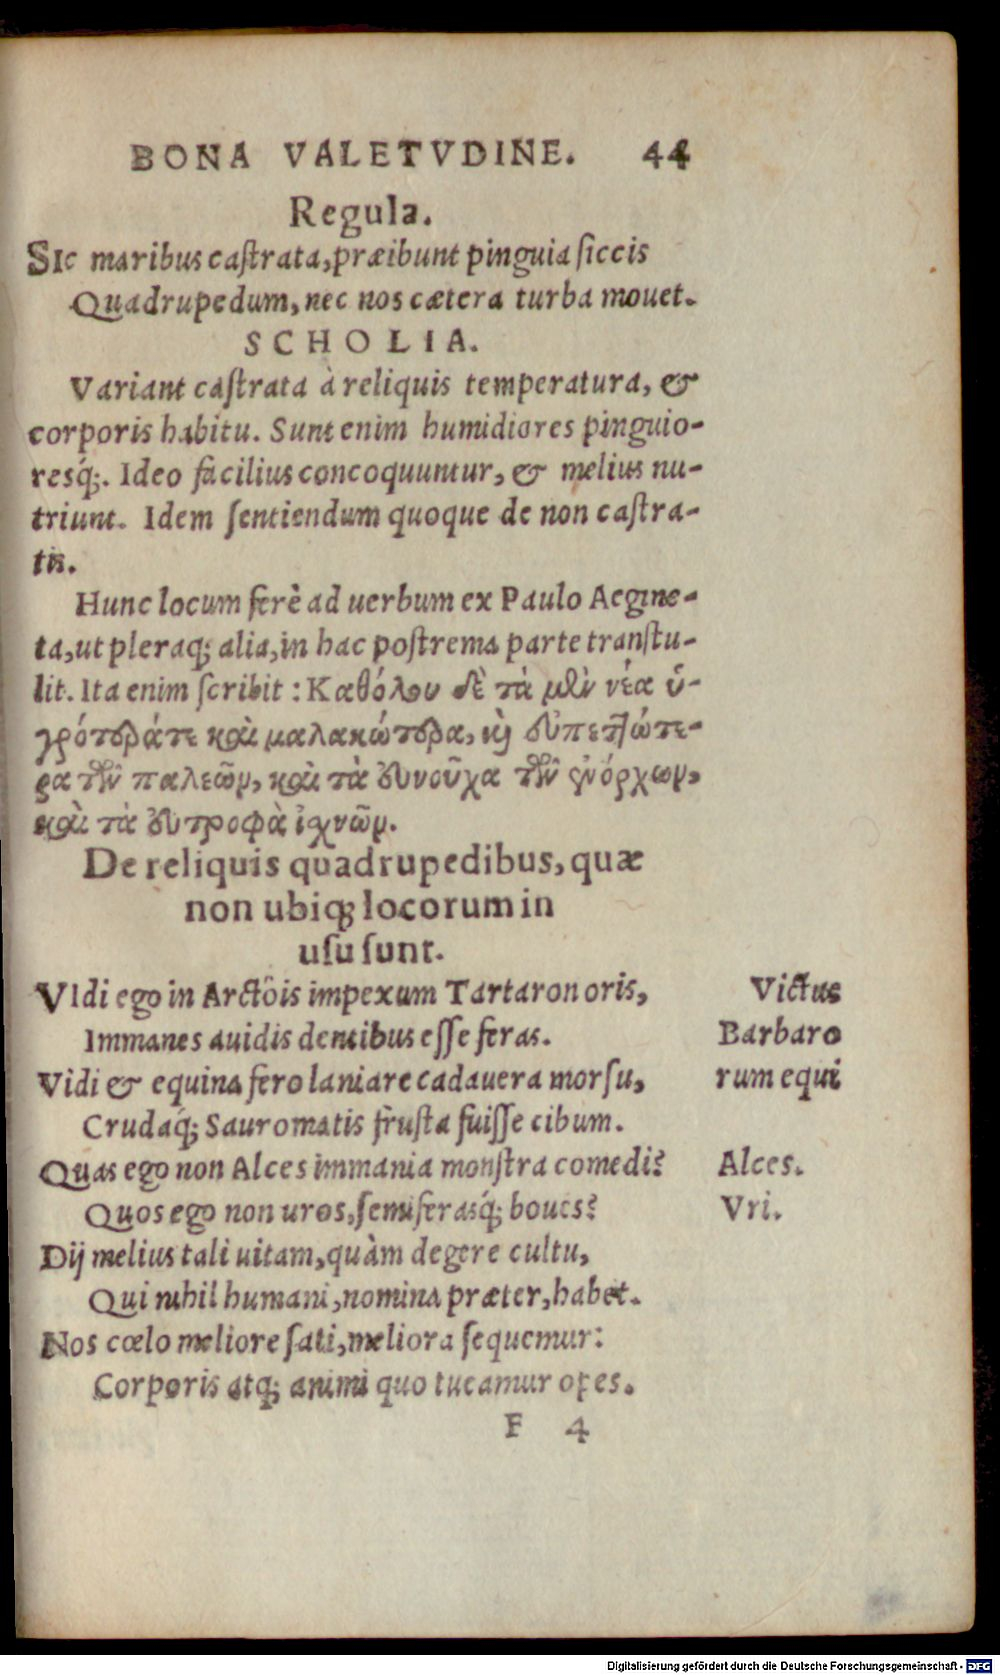 BONA VALETVDINE. 44
Regula.
SIc maribus caſtrata, præibunt pinguia ſiccis
Quadrupedum, nec nos cætera turba mouet.
SCHOLIA.
Variant caſtrata à reliquis temperatura, &
corporis habitu. Sunt enim humidiores pinguio-
resq́;. Ideo facilius concoquuntur, & melius nu-
triunt. Idem ſentiendum quoque de non caſtra-
tis.
Hunc locum ferè ad uerbum ex Paulo Aegine-
ta, ut pleraq; alia, in hac poſtrema parte tranſtu-
lit. Ita enim ſcribit: Καθόλου δὲ τὰ μὲν νέα ὑ-
γρότεράτε καὶ μαλακώτερα, κὶ εὐπεπτώτε-
ρα τῶν παλεῶν, καὶ τὰ ἐυνοῦχα τῶν ἐνόρχων,
καὶ τὰ ἐυτροφὰ ἰχνῶν.
De reliquis quadrupedibus, quæ
non ubiq; locorum in
uſu ſunt.
VIdi ego in Arctôis impexum Tartaron oris,
Immanes auidis dentibus eſſe feras.
Vidi & equina fero laniare cadauera morſu,
Crudaq́; Sauromatis fruſta fuiſſe cibum.
Quas ego non Alces immania monſtra comedi?
Quos ego non uros, ſemiferasq́; boues?
Dij melius tali uitam, quàm degere cultu,
Qui nihil humani, nomina præter, habet.
Nos cœlo meliore ſati, meliora ſequemur:
Corporis atq; animi quo tueamur opes.
Victus
Barbaro
rum equi
Alces.
Vri.
F 4
Digitalisierung gefördert durch die Deutsche Forschungsgemeinschaft - DFG